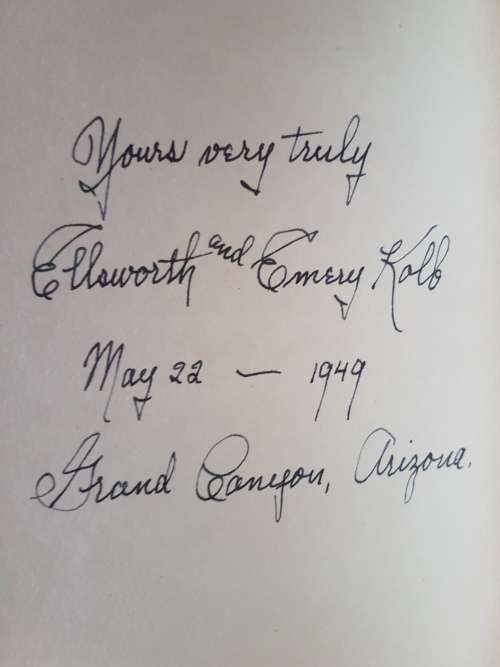 Yours very truly
Ellsworth and Emery Kolb
May 22 — 1949
Grand Canyon, Arizona.